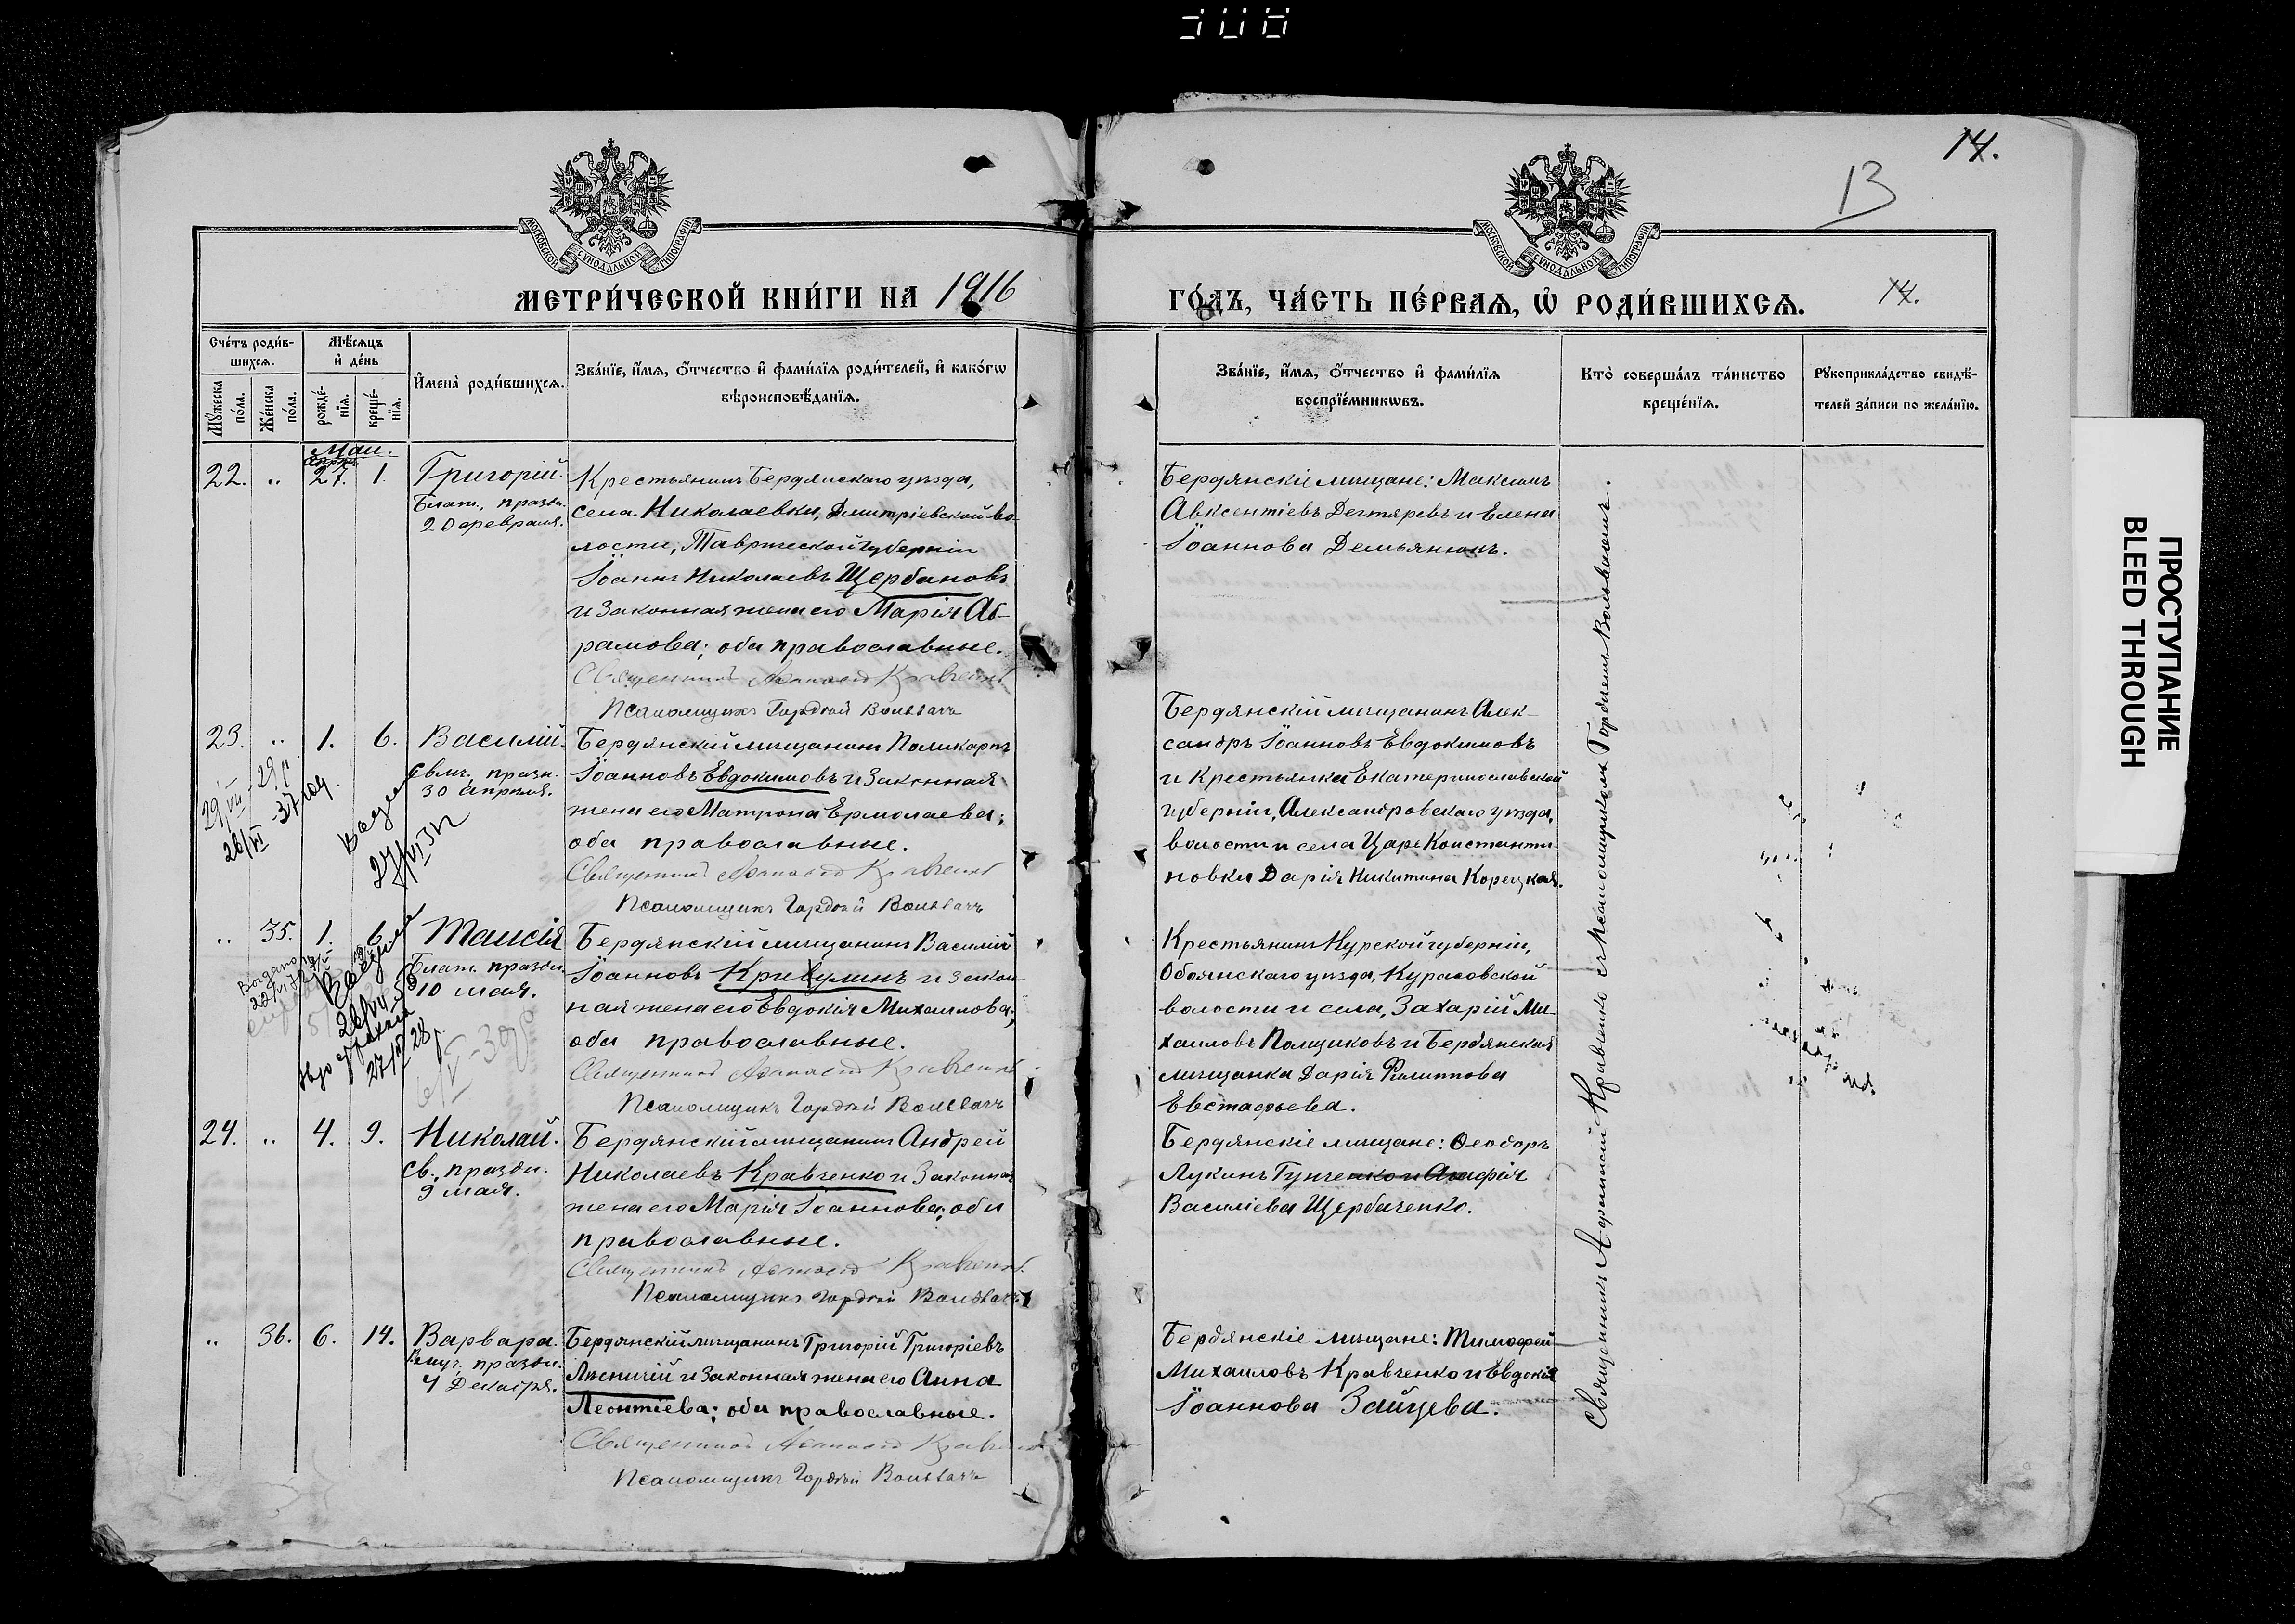 14.
13
МОСКОВСКОЙ СѴНОДАЛЬНОЙ ТИПОГРАФІИ
МОСКОВСКОЙ СѴНОДАЛЬНОЙ ТИПОГРАФІИ
МЕТРИ́ЧЕСКОЙ КНИ́ГИ НА 1916
ГО́ДЪ, ЧА́СТЬ ПЕ́РВАѦ, Ѡ҆ РОДИ́ВШИХСѦ.
14.
Сче́тъ роди́в-
шихсѧ.
Мꙋ́жеска
по́ла.
Же́нска
по́ла.
Мѣ́сѧцъ
и҆ де́нь
рожде́-
нїѧ.
креще́-
нїѧ.
И҆мена̀ роди́вшихсѧ.
Зва́нїе, и҆́мѧ, ѻ҆́тчество и҆ фами́лїѧ роди́телей, и҆ како́гѡ
вѣроисповѣ́данїѧ.
Зва́нїе, и҆́мѧ, ѻ҆́тчество и҆ фами́лїѧ
воспрїе́мникѡвъ.
Кто̀ соверша́лъ та́инство
креще́нїѧ.
Рꙋкоприкла́дство свидѣ́-
телей за́писи по жела́нїю.
Маи.
22. „ 27. 1. Григорій.
Благ., праздн.
20 февраля.
Крестьянинъ Бердянскаго уѣзда,
села Николаевки, Дмитріевской во-
лости, Таврической губерніи
Іоаннъ Николаевъ Щербановъ
и законная жена его Марія Аб-
рамова; оба православные.
Священникъ Афанасій Кравченко
Псаломщикъ Гордѣй Вольвачъ
Бердянскіе мѣщане: Максимъ
Авксентіевъ Дегтяревъ и Елена
Іоаннова Демьянюкъ.
23. „ 1. 6. Василій.
Свмч. праздн.
30 апрѣля.
Бердянскій мѣщанинъ Поликарпъ
Іоанновъ Евдокимовъ и законная
жена его Матрона Ермолаева;
оба православные.
Священникъ Афанасій Кравченко
Псаломщикъ Гордѣй Вольвачъ
Бердянскій мѣщанинъ Алек-
сандръ Іоанновъ Евдокимовъ
и крестьянка Екатеринославской
губерніи, Александровскаго уѣзда,
волости и села Царе Константи-
новки Дарія Никитина Корецкая.
„ 35. 1. 6. Таисія
Благ. праздн.
10 мая.
Бердянскій мѣщанинъ Василій
Іоанновъ Кривулинъ и закон-
ная жена его Евдокія Михаилова;
оба православные.
Священникъ Афанасій Кравченко
Псаломщикъ Гордѣй Вольвачъ
Крестьянинъ Курской губерніи,
Обоянскаго уѣзда, Курасовской
волости и села, Захарій Ми-
хаиловъ Полщиковъ и Бердянская
мѣщанка Дарія Филиппова
Евстафьева.
24. „ 4. 9. Николай.
Св. праздн.
9 мая.
Бердянскій мѣщанинъ Андрей
Николаевъ Кравченко и законная
жена его Марія Іоаннова; оба
православные.
Священникъ Афанасій Кравченко
Псаломщикъ Гордѣй Вольвачъ
Бердянскіе мѣщане: Ѳеодоръ
Лукинъ Гунченко и Агафія
Василіева Щербаченко.
„ 36. 6. 14. Варвара.
Вмуч. праздн.
4 Декабря.
Бердянскій мѣщанинъ Григорій Григоріевъ
Лѣсничій и законная жена его Анна
Леонтіева; оба православные.
Священникъ Афанасій Кравченко
Псаломщикъ Гордѣй Вольвачъ
Бердянскіе мѣщане: Тимофей
Михаиловъ Кравченко и Евдокія
Іоаннова Зайцева.
Священникъ Афанасій Кравченко съ псаломщикомъ Гордѣемъ Вольвачемъ.
ПРОСТУПАНИЕ
BLEED THROUGH